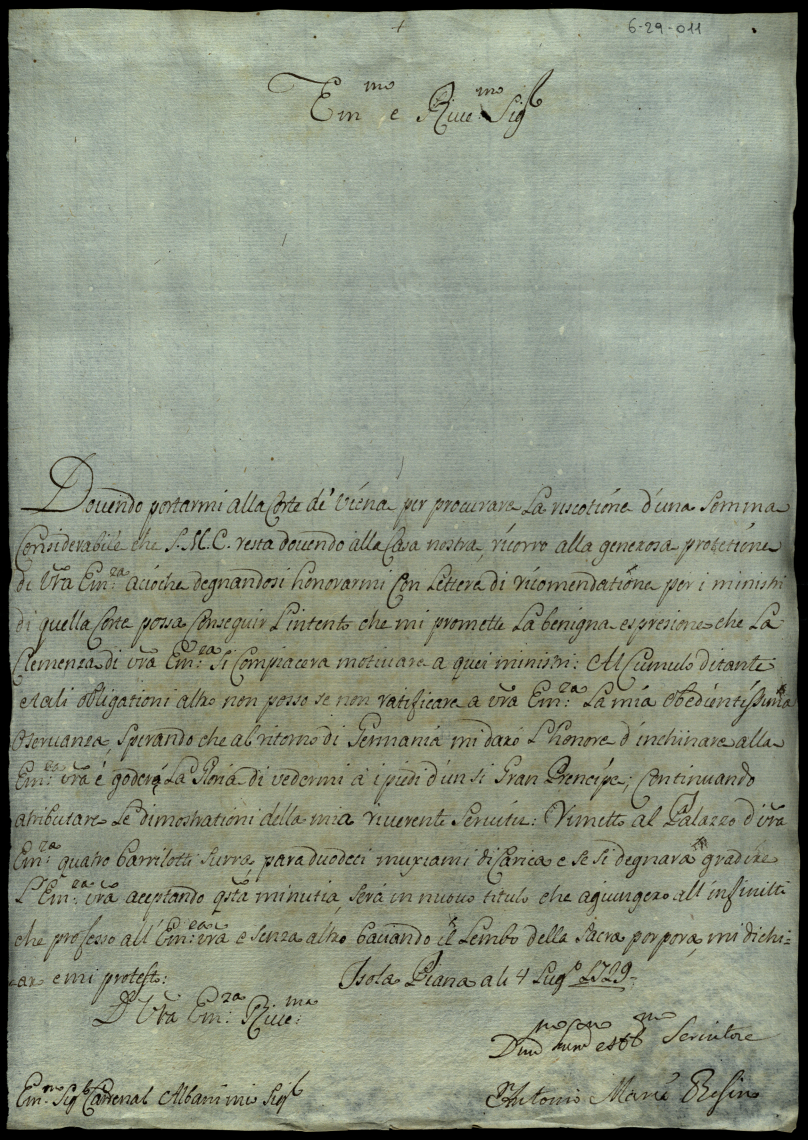 6-29-011
Em.mo e Riue.mo Sig.r
Douendo portarmi alla Corte de' Viena per procurare La riscotione d'una Somma
Considerabile che S.M.C. resta douendo alla Casa nostra, ricorro alla generosa protetione
di Vra Em.za acioche degnandosi honorarmi Con Lettere di ricomendatione per i ministri
di quella Corte possa Conseguir L'intento che mi promette La benigna espresione che La
Clemenza di vra Em.za Si Compiacera motiuare a quei ministri: Al Cumulo di tante
e tali obligationi altro non posso se non ratificare a vra Em.za La mia obedientissima
Oseruanza, sperando che al ritorno di Germania mi daró L'honore d'inchinare alla
Em.za vra é goderá La Gloria di vedermi á i piedi d'un si Gran Prencipe, Continuando
atributare Le dimostrationi della mia riuerente Seruitu: Vimetto al Palazzo d'vra
Em.za quatro barrilotti Surra, para duodeci muxiami di Carica e se si degnara gradire
L'Em.za vra aceptando qsta minutia, será in nuouo titulo che agiungero all'infiniti
che professo all'Em.za vra e senza altro baciando il Lembo della Sacra porpora, mi dichi-
-aro e mi protesto: Isola Piana a li 4 Lug.o 1729.
D' Vra Em.za Riue.ma
Seruitore
Em.mo Sig.r Cardenal Albanimi Sig.r
Antonio Maria